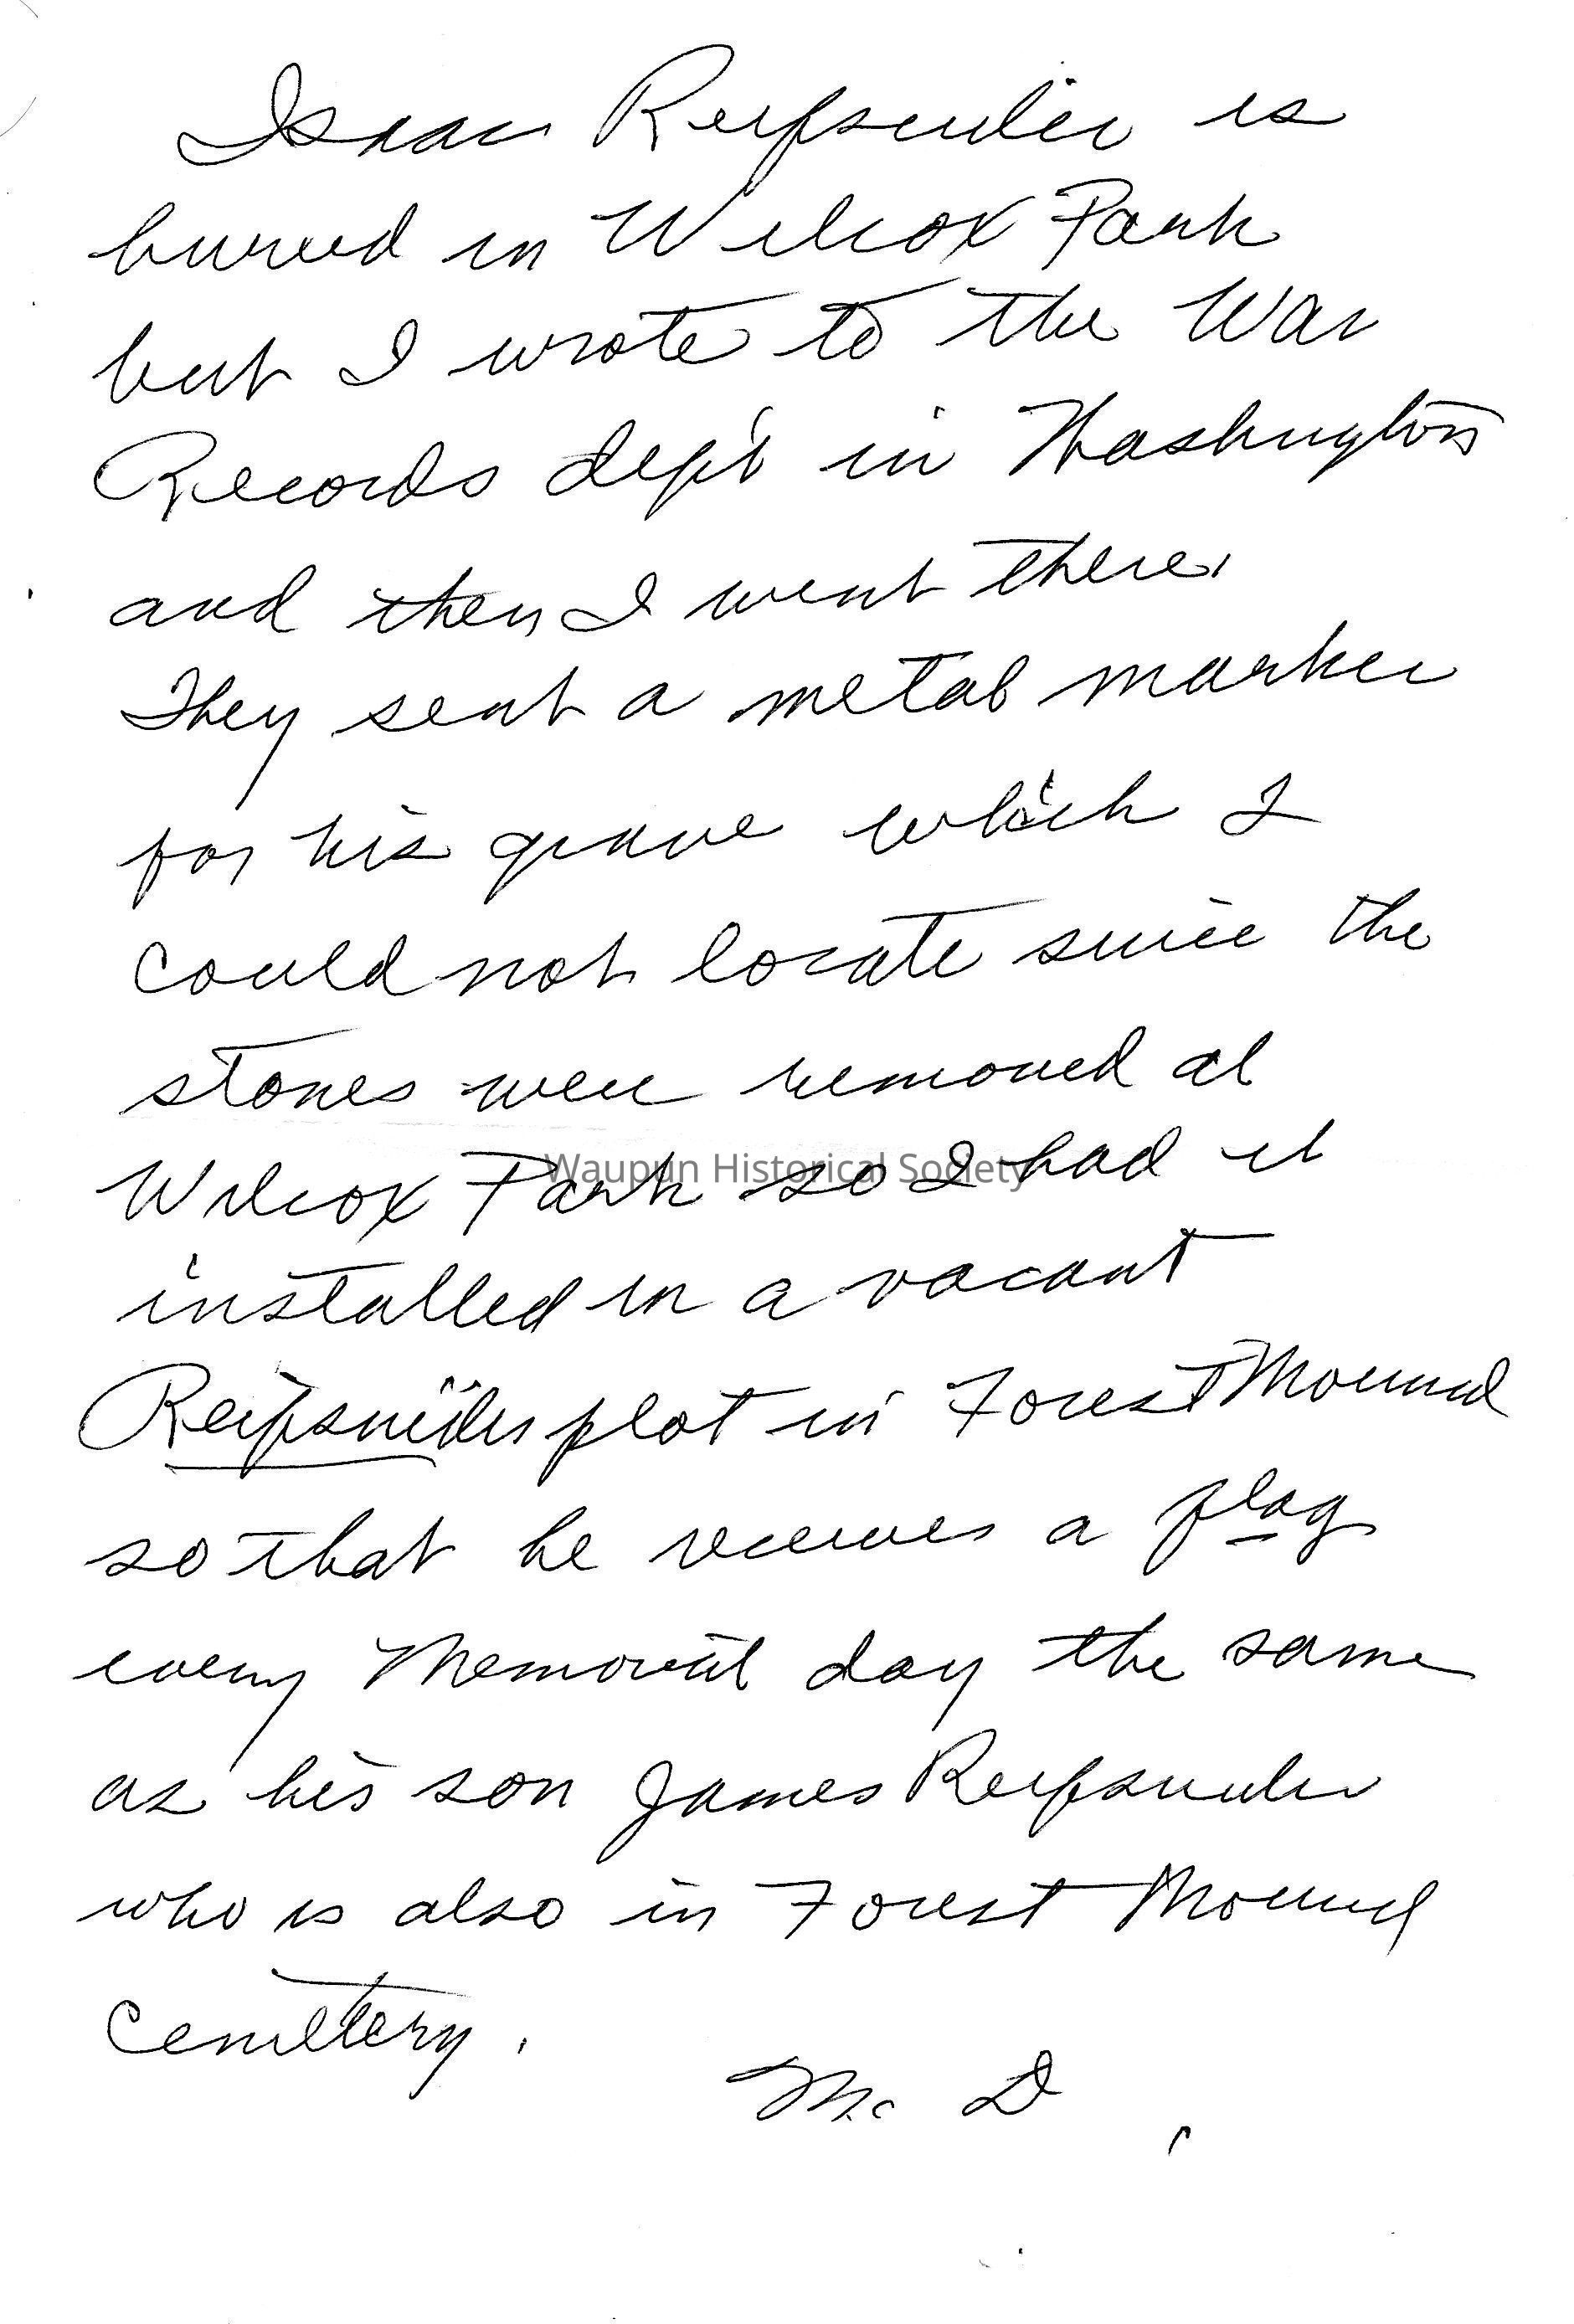 Isaac Reifsnider is
buried in Wilcox Park
but I wrote to the War
Records dep't in Washington
and then I went there.
They sent a metal marker
for his grave which I
could not locate since the
stones were removed at
Wilcox Park so I had it
Waupun Historical Society
installed in a vacant
Reifsnider plot in Forest Mound
so that he receives a flag
every Memorial day the same
as his son James Reifsnider
who is also in Forest Mound
Cemetery.
Mc D